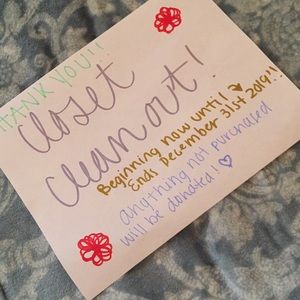 THANK YOU!!
Closet
Clean out!
Beginning now until
Ends December 31st 2019!!
anything not purchased
will be donated!